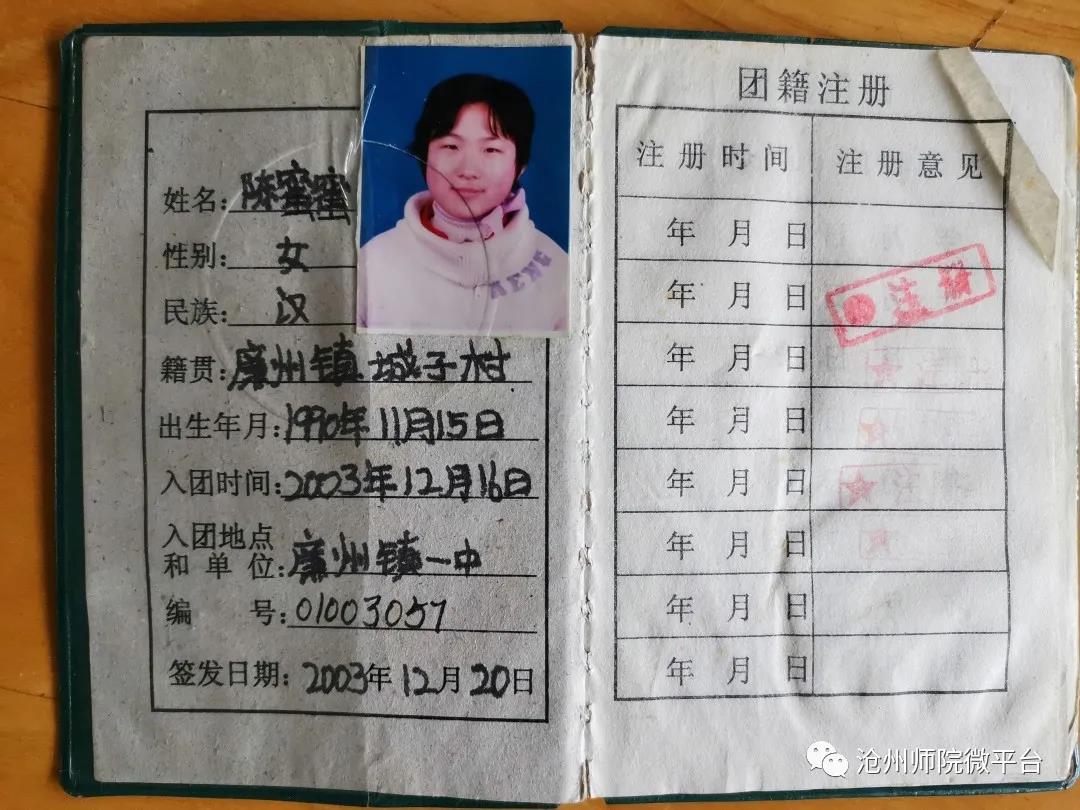 姓名：陈蜜蜜
性别：女
民族：汉
籍贯：廉州镇城子村
出生年月：1990年11月15日
入团时间：2003年12月16日
入团地点
和单位：廉州镇一中
编号：01003057
签发日期：2003年12月20日
AENG
团籍注册
注册时间 注册意见
年 月 日
年 月 日 注册
年 月 日
年 月 日
年 月 日
年 月 日
年 月 日
年 月 日
沧州师院微平台